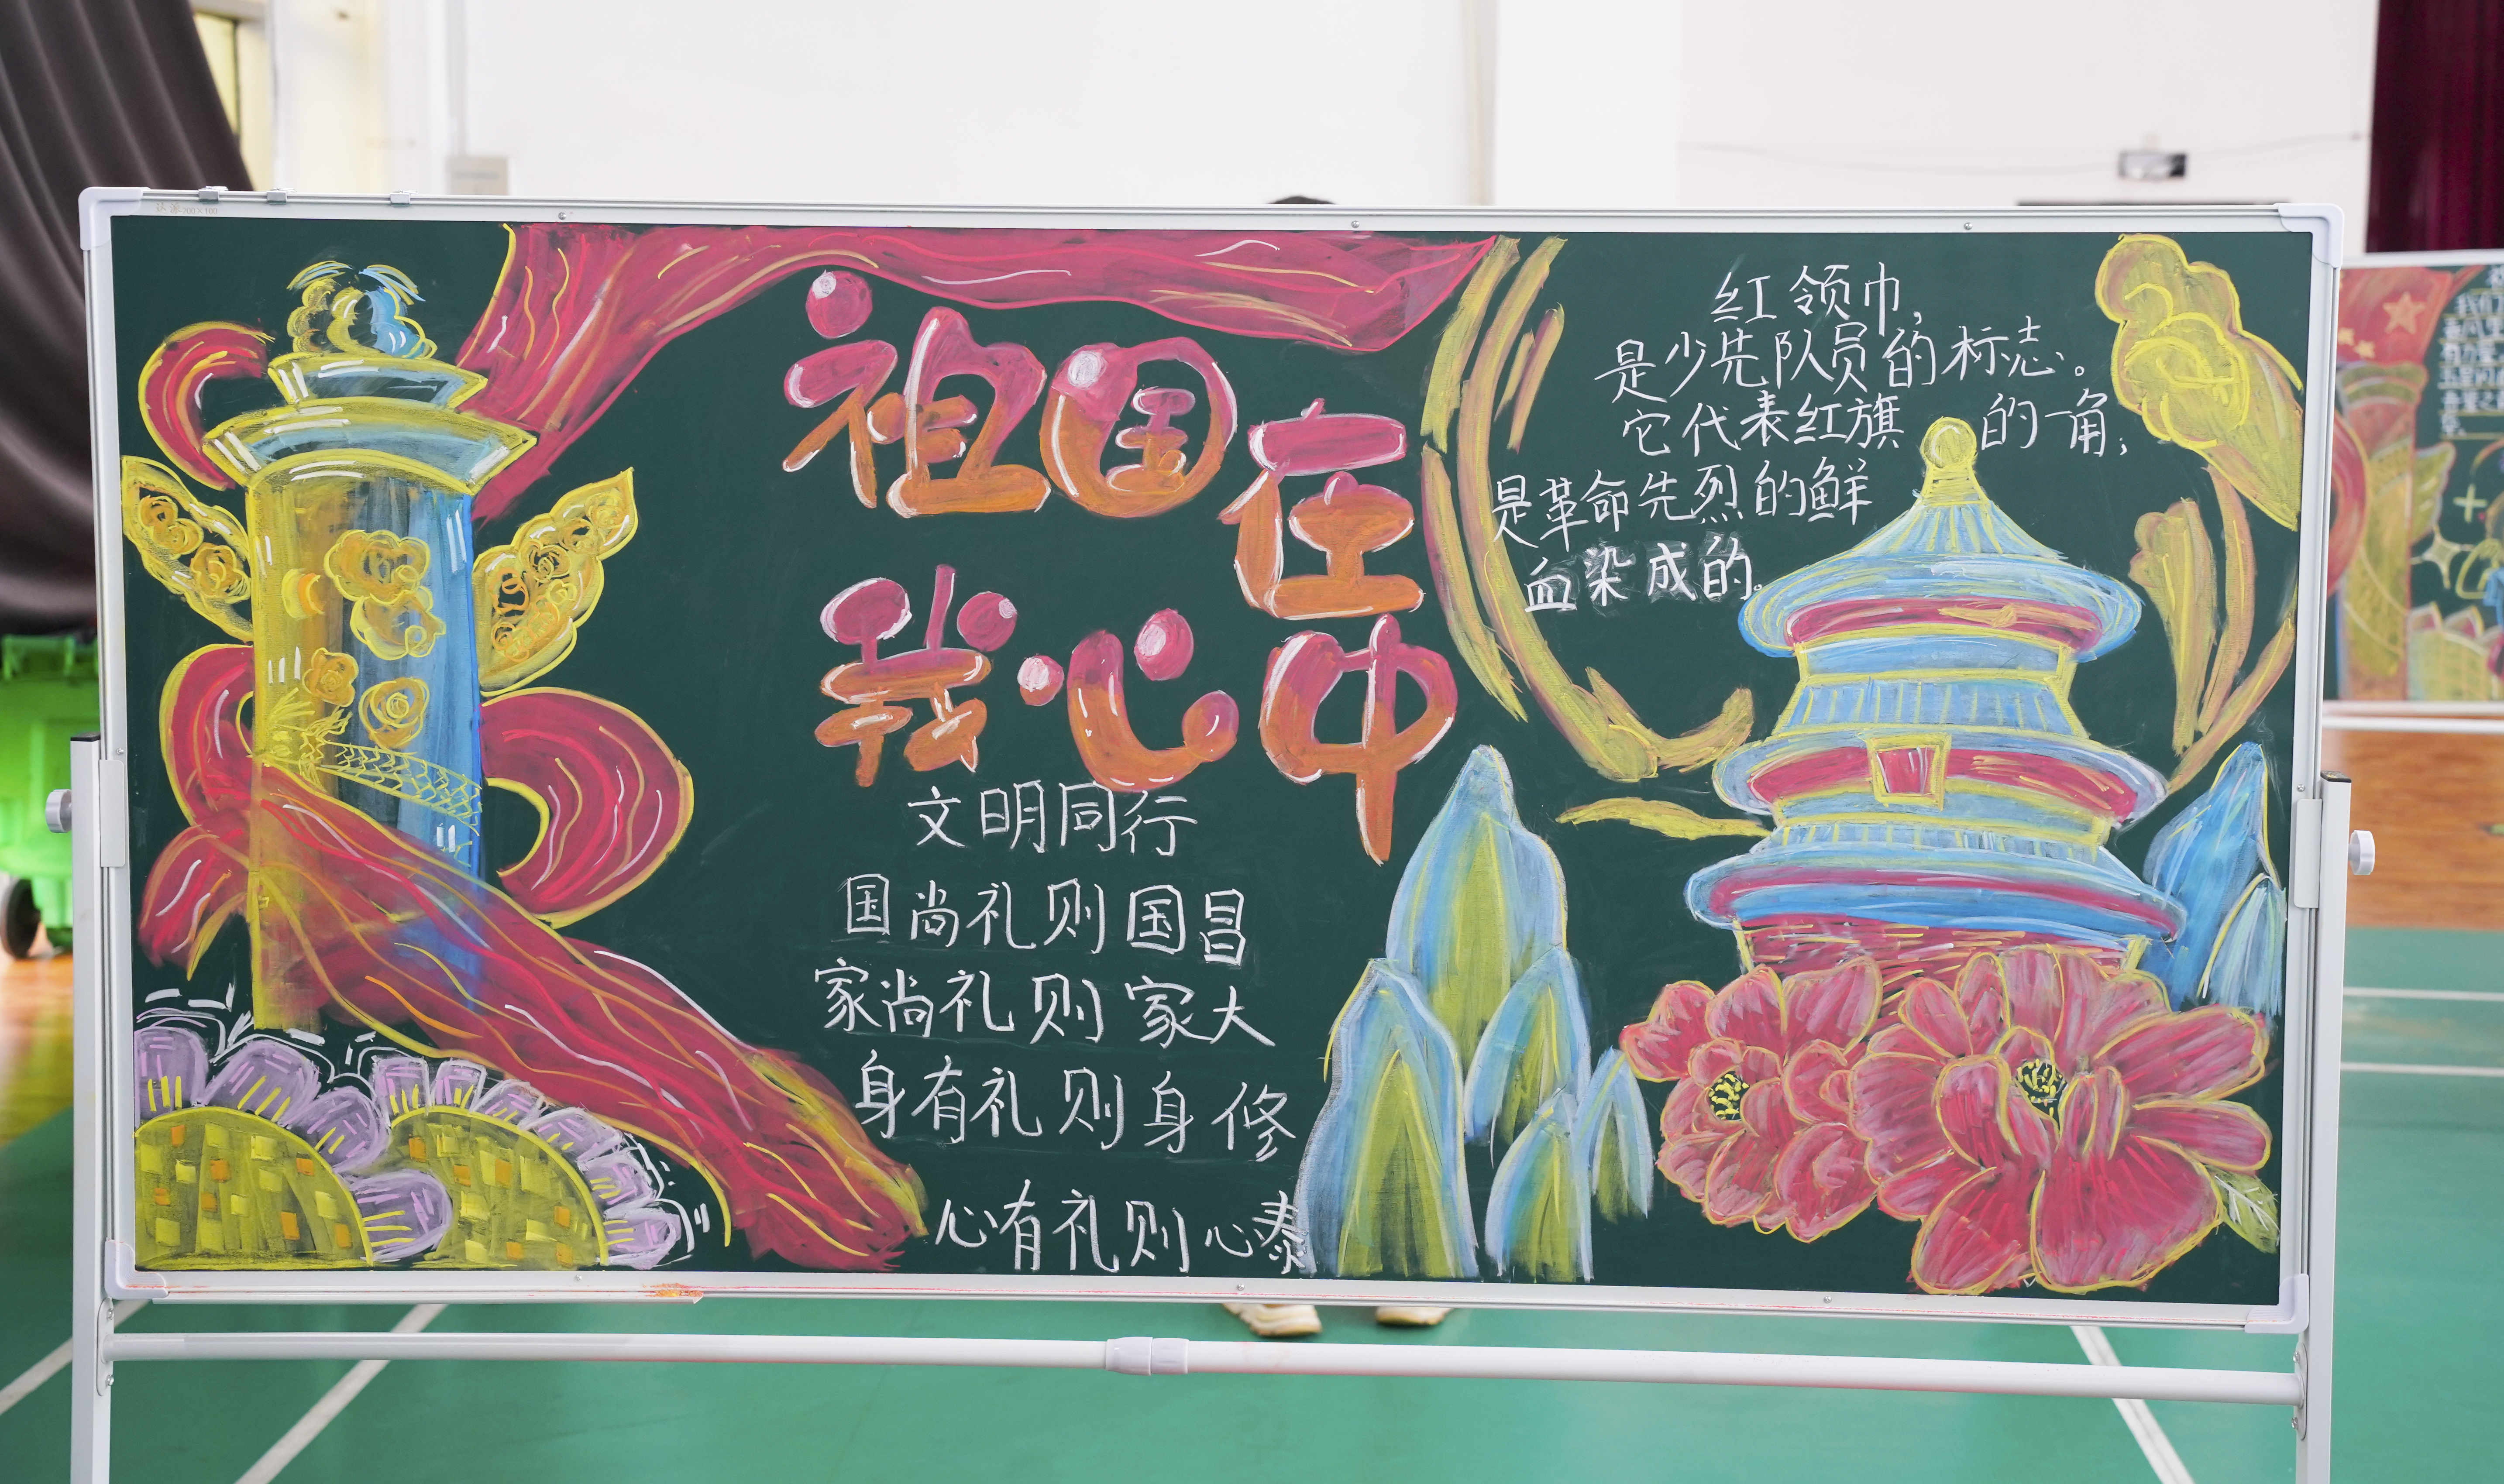 祖国在
我心中
文明同行
国尚礼则国昌
家尚礼则家大
身有礼则身修
心有礼则心泰
红领巾，
是少先队员的标志。
它代表红旗的一角；
是革命先烈的鲜
血染成的。